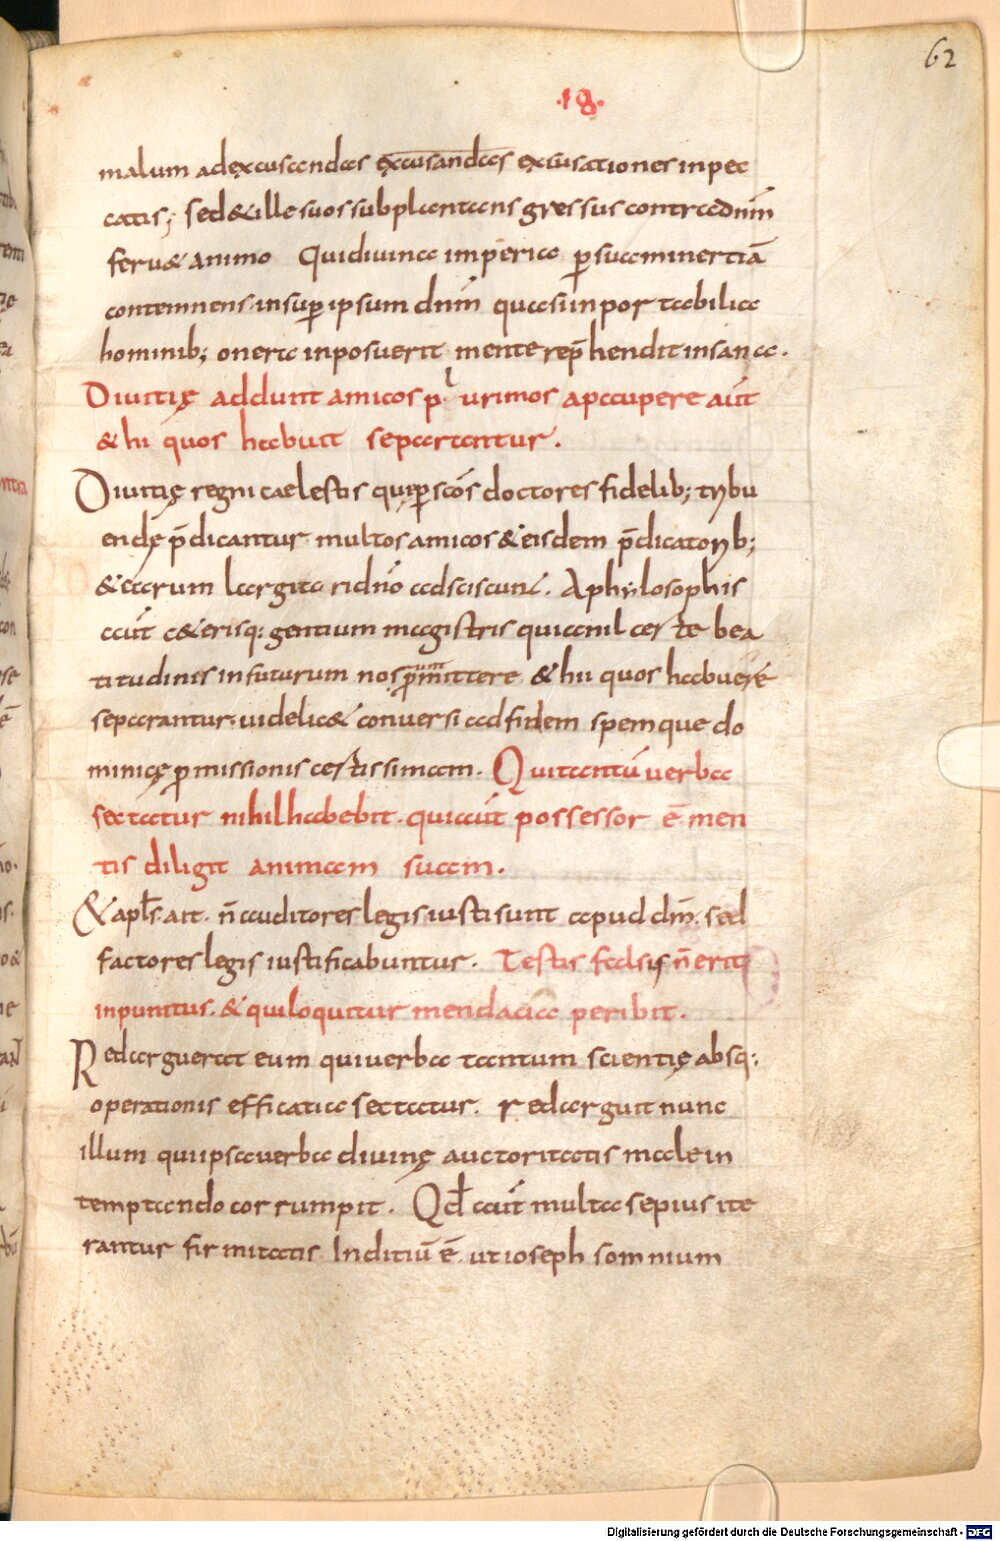 62
·18·
malum adexcusandas excusandas excusationes inpec
catis; sed & ille suos subplantans gressus contra dnm̄
feru& animo Qui diuina imperia ꝑ suam inertiā
contemnens. insuꝑ ipsum dnm̄ quasi inportabilia
hominib; onera inposuerit mente rep̄hendit insana.
Diuitię addunt amicos plurimos apaupere aūt
& hi quos habuit separantur.
Diuitię regni caelestis quę ꝑ scōs doctores fidelib; tribu
endę p̄dicantur multos amicos & eisdem p̄dicatorib;
& aeternum largitori dn̄o adsciscunt. A philosophis
aūt c&erisq: gentium magistris qui anil certe bea
titudinis infuturum nos ꝓmittere & hii quos habuerē
separantur. uidelic& conuersi ad fidem spemque do
minicę ꝓmissionis certissimam. Qui tantū uerba
sectatur nihil habebit. qui aūt possessor ē men
tis diligit animam suam.
& apl̄s. ait. n̄ auditores legis iusti sunt apud dm̄. sed
factores legis iustificabuntur. Testis falsus n̄ erit
inpunitus. & qui loquitur mendacia peribit.
Redarguerat eum qui uerba tantum scientię absq:
operationis efficatia sectatur. redarguit nunc
illum qui ipsa uerba diuinę auctoritatis male in
temptando corrumpit. Qd̄ aūt multa sepius ite
rantur firmitatis. Inditiū ē. ut ioseph somnium
Digitalisierung gefördert durch die Deutsche Forschungsgemeinschaft - DFG